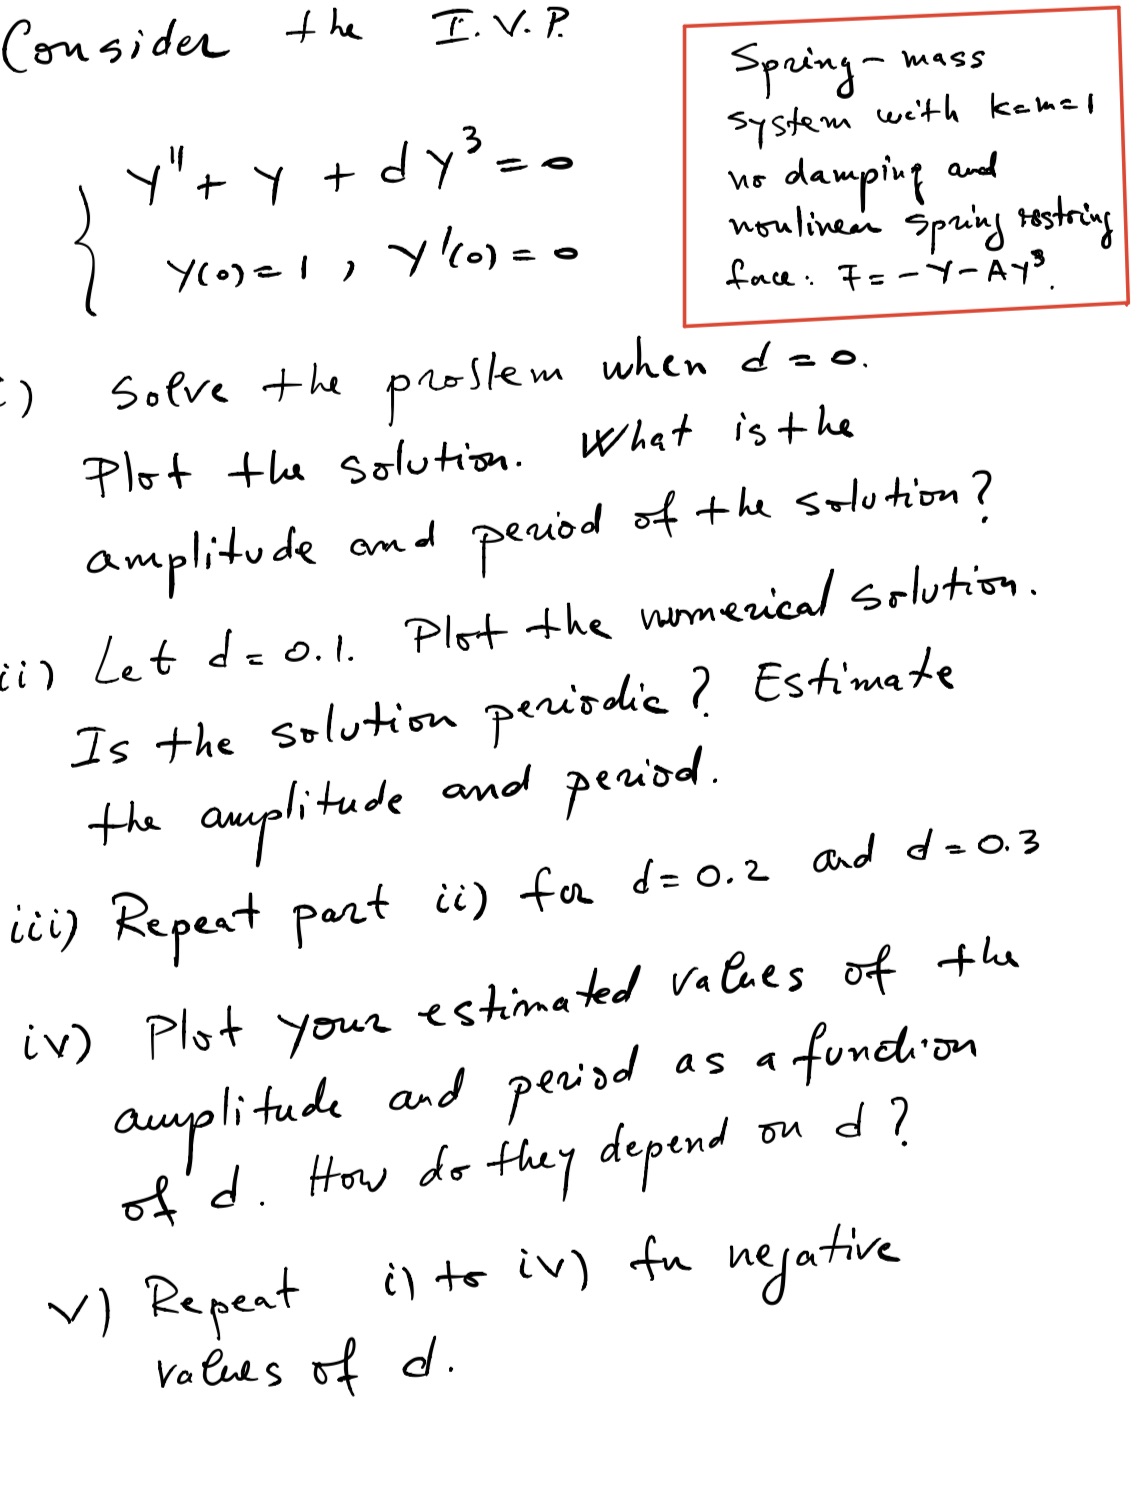 Consider the I.V.P.
y'' + y + d y³ = 0
y(0) = 1, y'(0) = 0
Spring-mass
system with k=m=1
no damping and
nonlinear spring restoring
force: F = -y - Ay³.
i) Solve the problem when d = 0.
Plot the solution. What is the
amplitude and period of the solution?
ii) Let d = 0.1. Plot the numerical solution.
Is the solution periodic? Estimate
the amplitude and period.
iii) Repeat part ii) for d = 0.2 and d = 0.3
iv) Plot your estimated values of the
amplitude and period as a function
of d. How do they depend on d?
v) Repeat i) to iv) for negative
values of d.